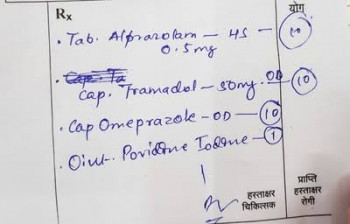 Rx
योग
. Tab. Alprazolam — HS — 10
0.5mg
Cap. Tramadol — 50mg. OD — 10
. Cap Omeprazole - OD — 10
. Oint. Povidone Iodone — 1
हस्ताक्षर
चिकित्सक
प्राप्ति
हस्ताक्षर
रोगी